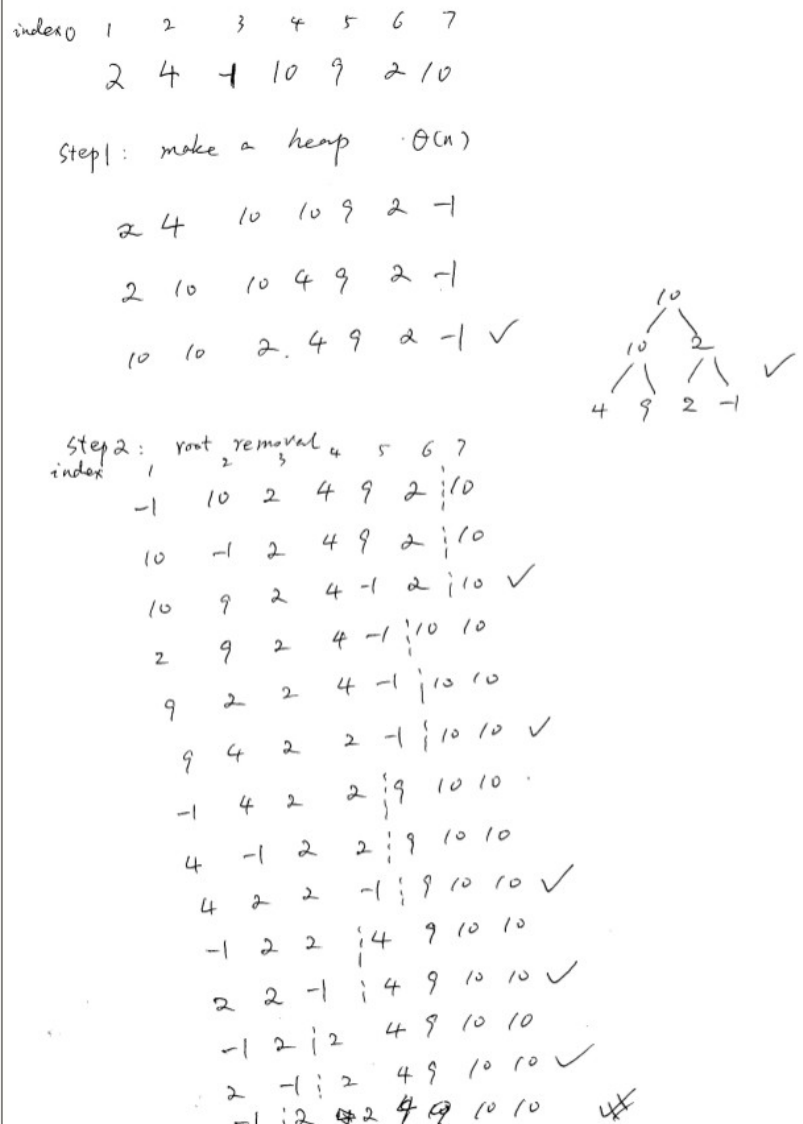 index 0 1 2 3 4 5 6 7
2 4 -1 10 9 2 10
Step1: make a heap Θ(n)
2 4 10 10 9 2 -1
2 10 10 4 9 2 -1
10 10 2. 4 9 2 -1 ✓
10
10 2
4 9 2 -1 ✓
Step2: root removal
index 1 2 3 4 5 6 7
-1 10 2 4 9 2 ¦ 10
10 -1 2 4 9 2 ¦ 10
10 9 2 4 -1 2 ¦ 10 ✓
2 9 2 4 -1 ¦ 10 10
9 2 2 4 -1 ¦ 10 10
9 4 2 2 -1 ¦ 10 10 ✓
-1 4 2 2 ¦ 9 10 10
4 -1 2 2 ¦ 9 10 10
4 2 2 -1 ¦ 9 10 10 ✓
-1 2 2 ¦ 4 9 10 10
2 2 -1 ¦ 4 9 10 10 ✓
-1 2 ¦ 2 4 9 10 10
2 -1 ¦ 2 4 9 10 10 ✓
-1 ¦ 2 2 4 9 10 10